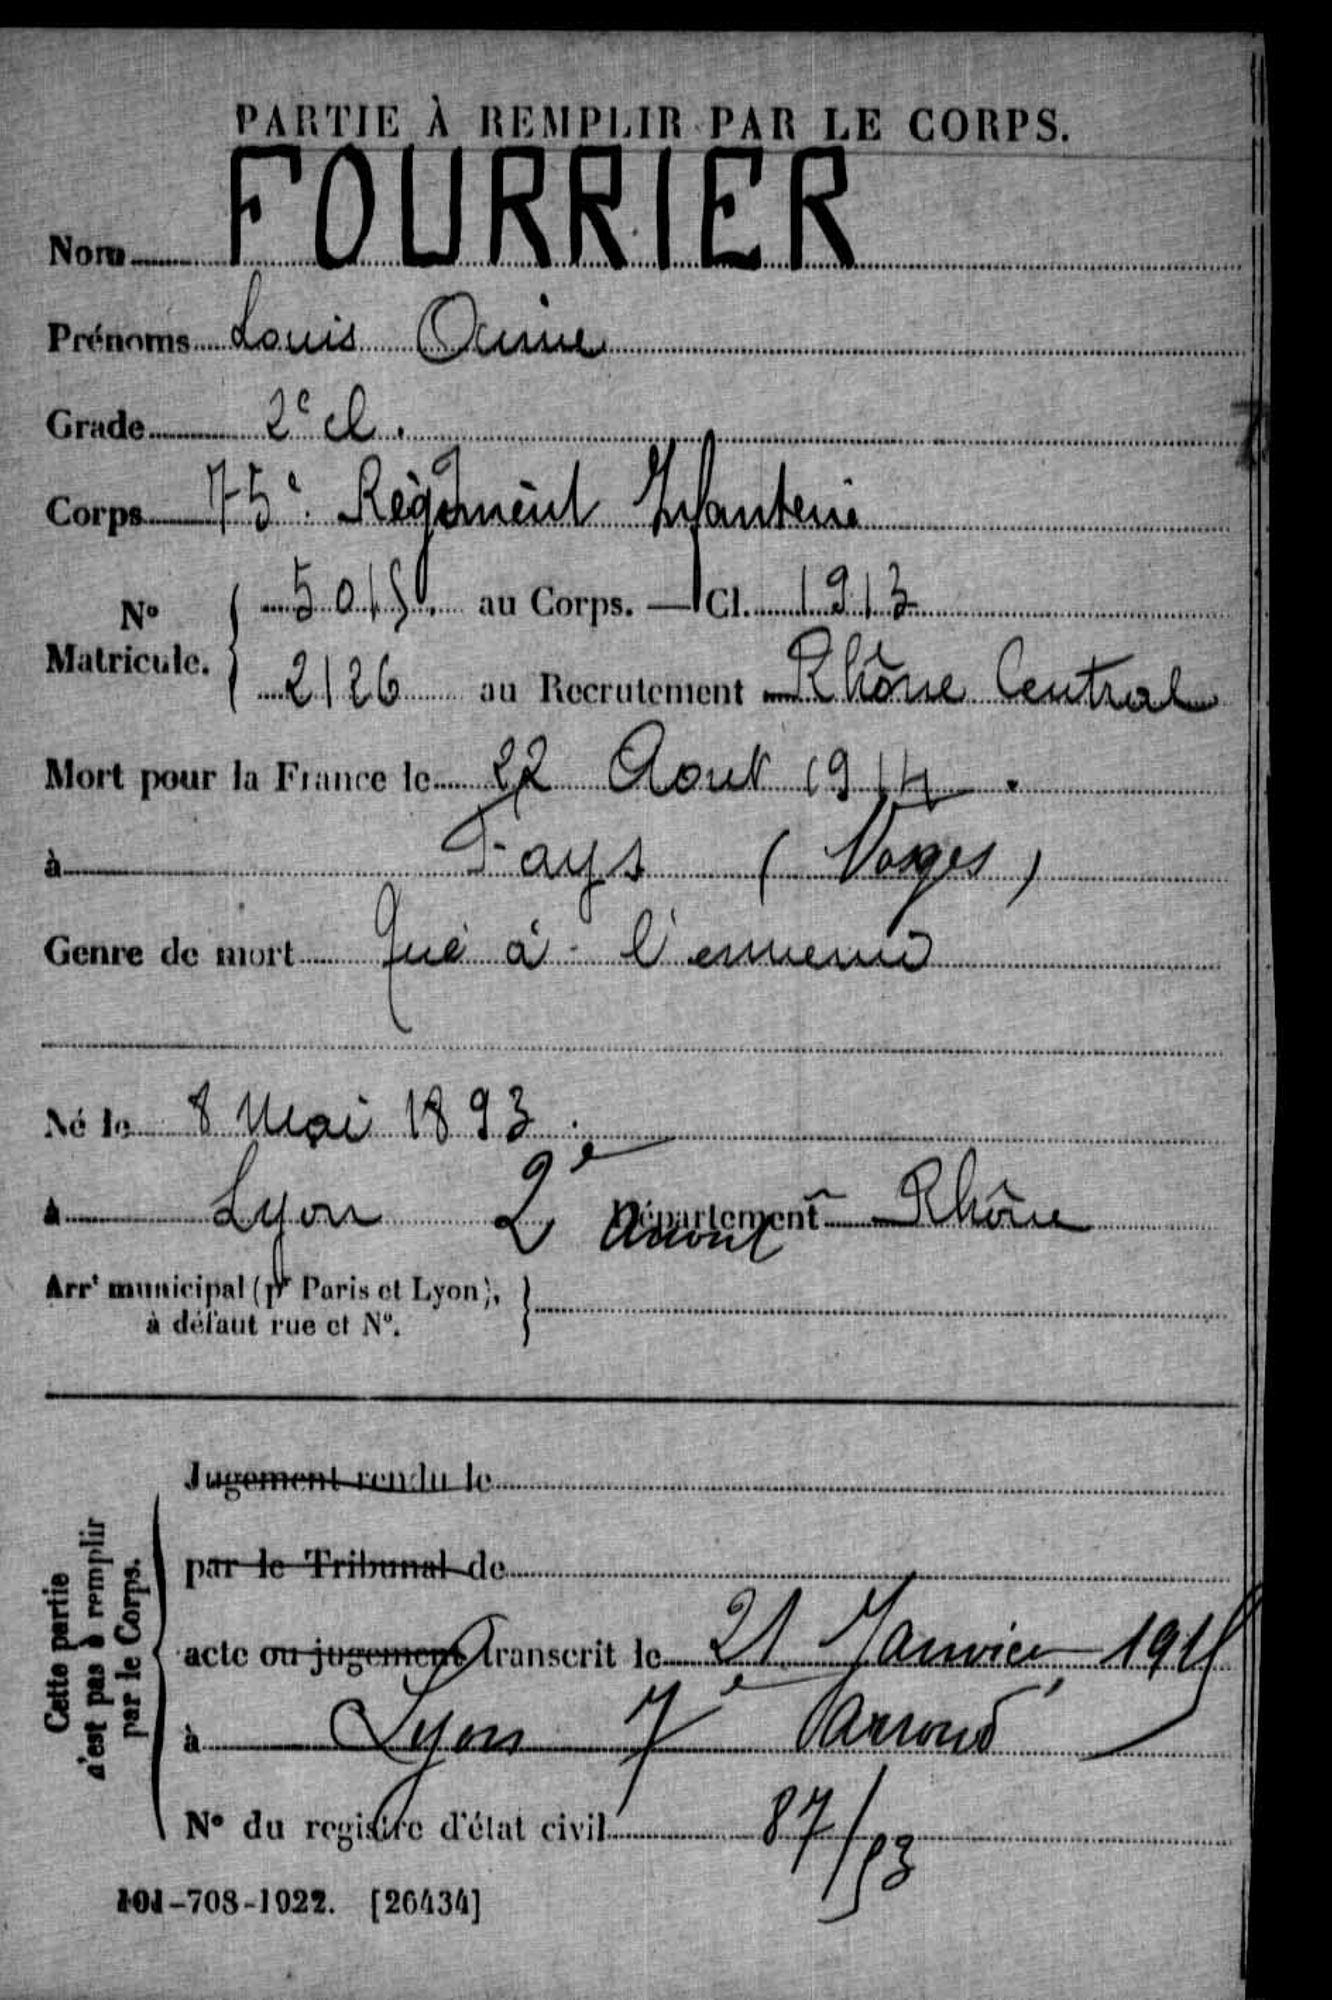 PARTIE À REMPLIR PAR LE CORPS.
Nom FOURRIER
Prénoms Louis
Grade 2e cl.
Corps 75e Régiment Infanterie
N° Matricule. { 5015. au Corps. — Cl. 1913
2126 au Recrutement Rhône Central
Mort pour la France le 22 Aout 1914.
à Fays (Vosges)
Genre de mort Tué à l'ennemi
Né le 8 Mai 1893.
à Lyon 2e Arront Département Rhône
Arrt municipal (pr Paris et Lyon), à défaut rue et N°. }
Cette partie n'est pas à remplir par le Corps.
Jugement rendu le
par le Tribunal de
acte ou jugement transcrit le 21 Janvier 1915
à Lyon 7e Arrond
N° du registre d'état civil 87/93
101-708-1922. [26434]